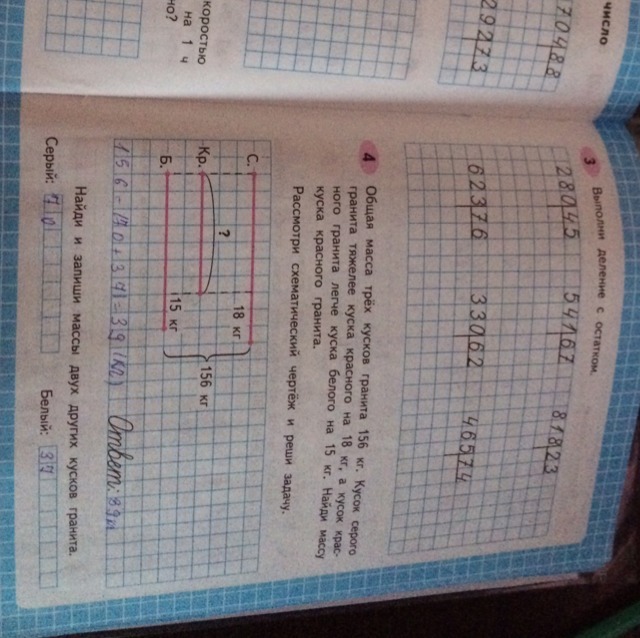 коростью
на 1 ч
но?
число
70488
29273
3 Выполни деление с остатком.
28045 54167 81823
62376 33062 46574
4 Общая масса трёх кусков гранита 156 кг. Кусок серого
гранита тяжелее куска красного на 18 кг, а кусок крас-
ного гранита легче куска белого на 15 кг. Найди массу
куска красного гранита.
Рассмотри схематический чертёж и реши задачу.
С.
18 кг
Кр.
?
156 кг
Б.
15 кг
Ответ:
Найди и запиши массы двух других кусков гранита.
Серый: Белый: 37